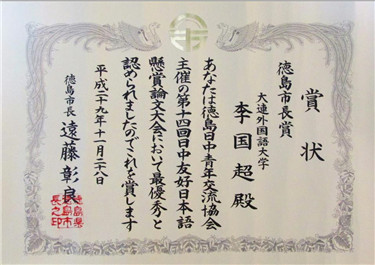 賞状
徳島市長賞
大連外国語大学
李国超殿
あなたは徳島日中青年交流協会
主催の第十四回日中友好日本語
懸賞論文大会において最優秀と
認められましたのでこれを賞します
平成二十九年十一月二十八日
徳島市長 遠藤彰良
徳島県
徳島市
長之印